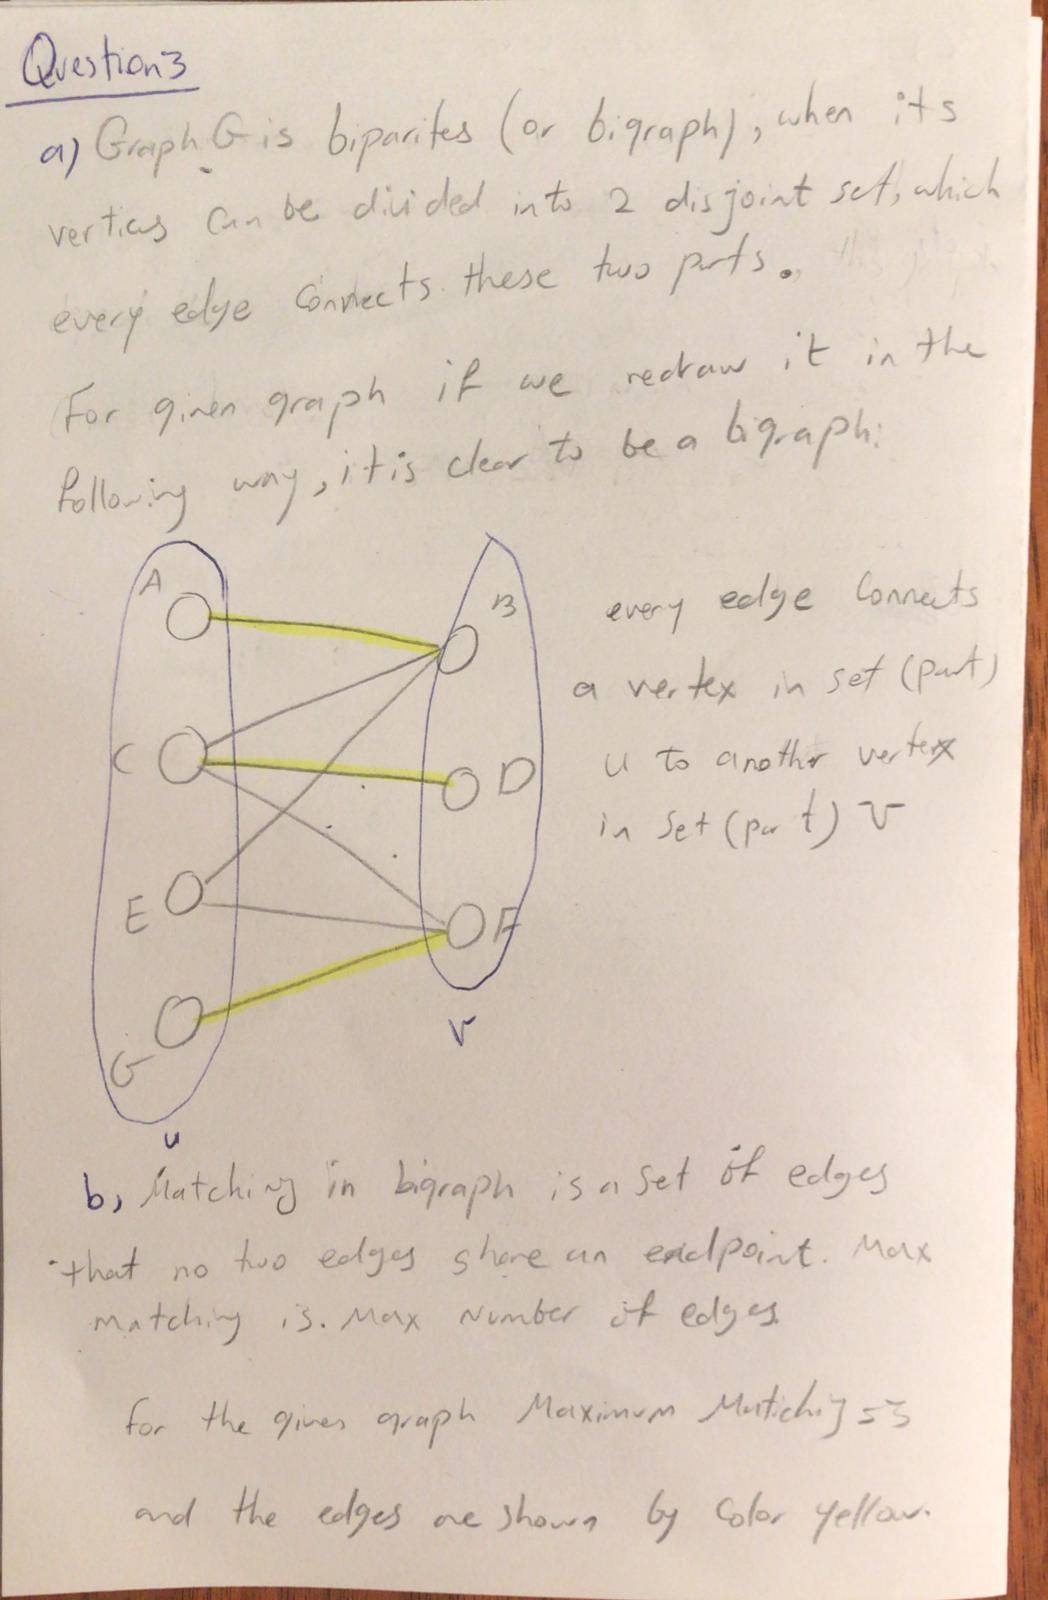 Question 3
a) Graph G is biparites (or bigraph), when its
verticus can be divided into 2 disjoint set, which
every edge connects these two parts.
For given graph if we redraw it in the
following way, it is clear to be a bigraph:
A
B
every edge connects
a vertex in set (part)
C
D
u to another vertex
in set (part) V
E
F
G
V
u
b, Matching in bigraph is a set of edges
that no two edges share an endpoint. Max
matching is. Max Number of edges.
for the given graph Maximum Matching = 3
and the edges are shown by color yellow.